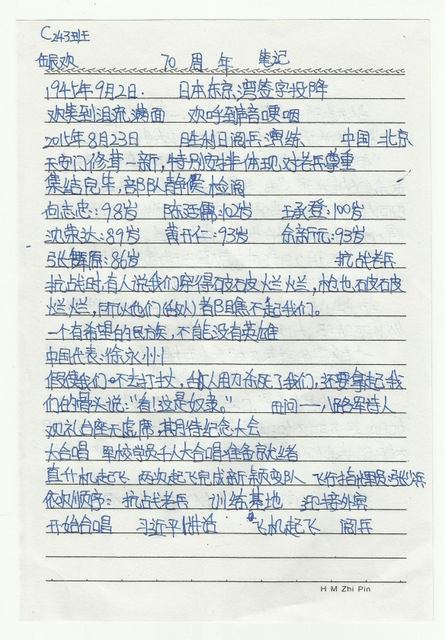 C243班
欢 70 周年 笔记
1945年9月2日. 日本东京湾签字投降
欢集到泪流满面 欢呼到声音哽咽
2015年8月23日 胜利日阅兵演练 中国 北京
天安门修葺一新,特别安排体现对老兵尊重
集结完毕,部队静候检阅
向志忠:98岁 102岁 王承登:100岁
沈荣达:89岁 黄开仁:93岁 徐新元:93岁
张辉原:86岁 抗战老兵
抗战时,有人说我们穿得破破烂烂,枪也破破
烂烂,所以他们(敌人)者瞧不起我们。
一个有希望的民族,不能没有英雄
中国代表:徐永州
假使我们不去打仗,敌人用刀杀死了我们,还要拿起我
们的骨头说:"看!这是奴隶。" 田间——八路军诗人
观礼台座无虚席,其月待纪念大会
大合唱 军校学员千人大合唱准备就绪
直升机起飞 两次起飞完成新颖变队 飞行指挥员:张
依次顺序: 抗战老兵 训练基地 迎接外宾
开始合唱 习近平讲话 飞机起飞 阅兵
H M Zhi Pin